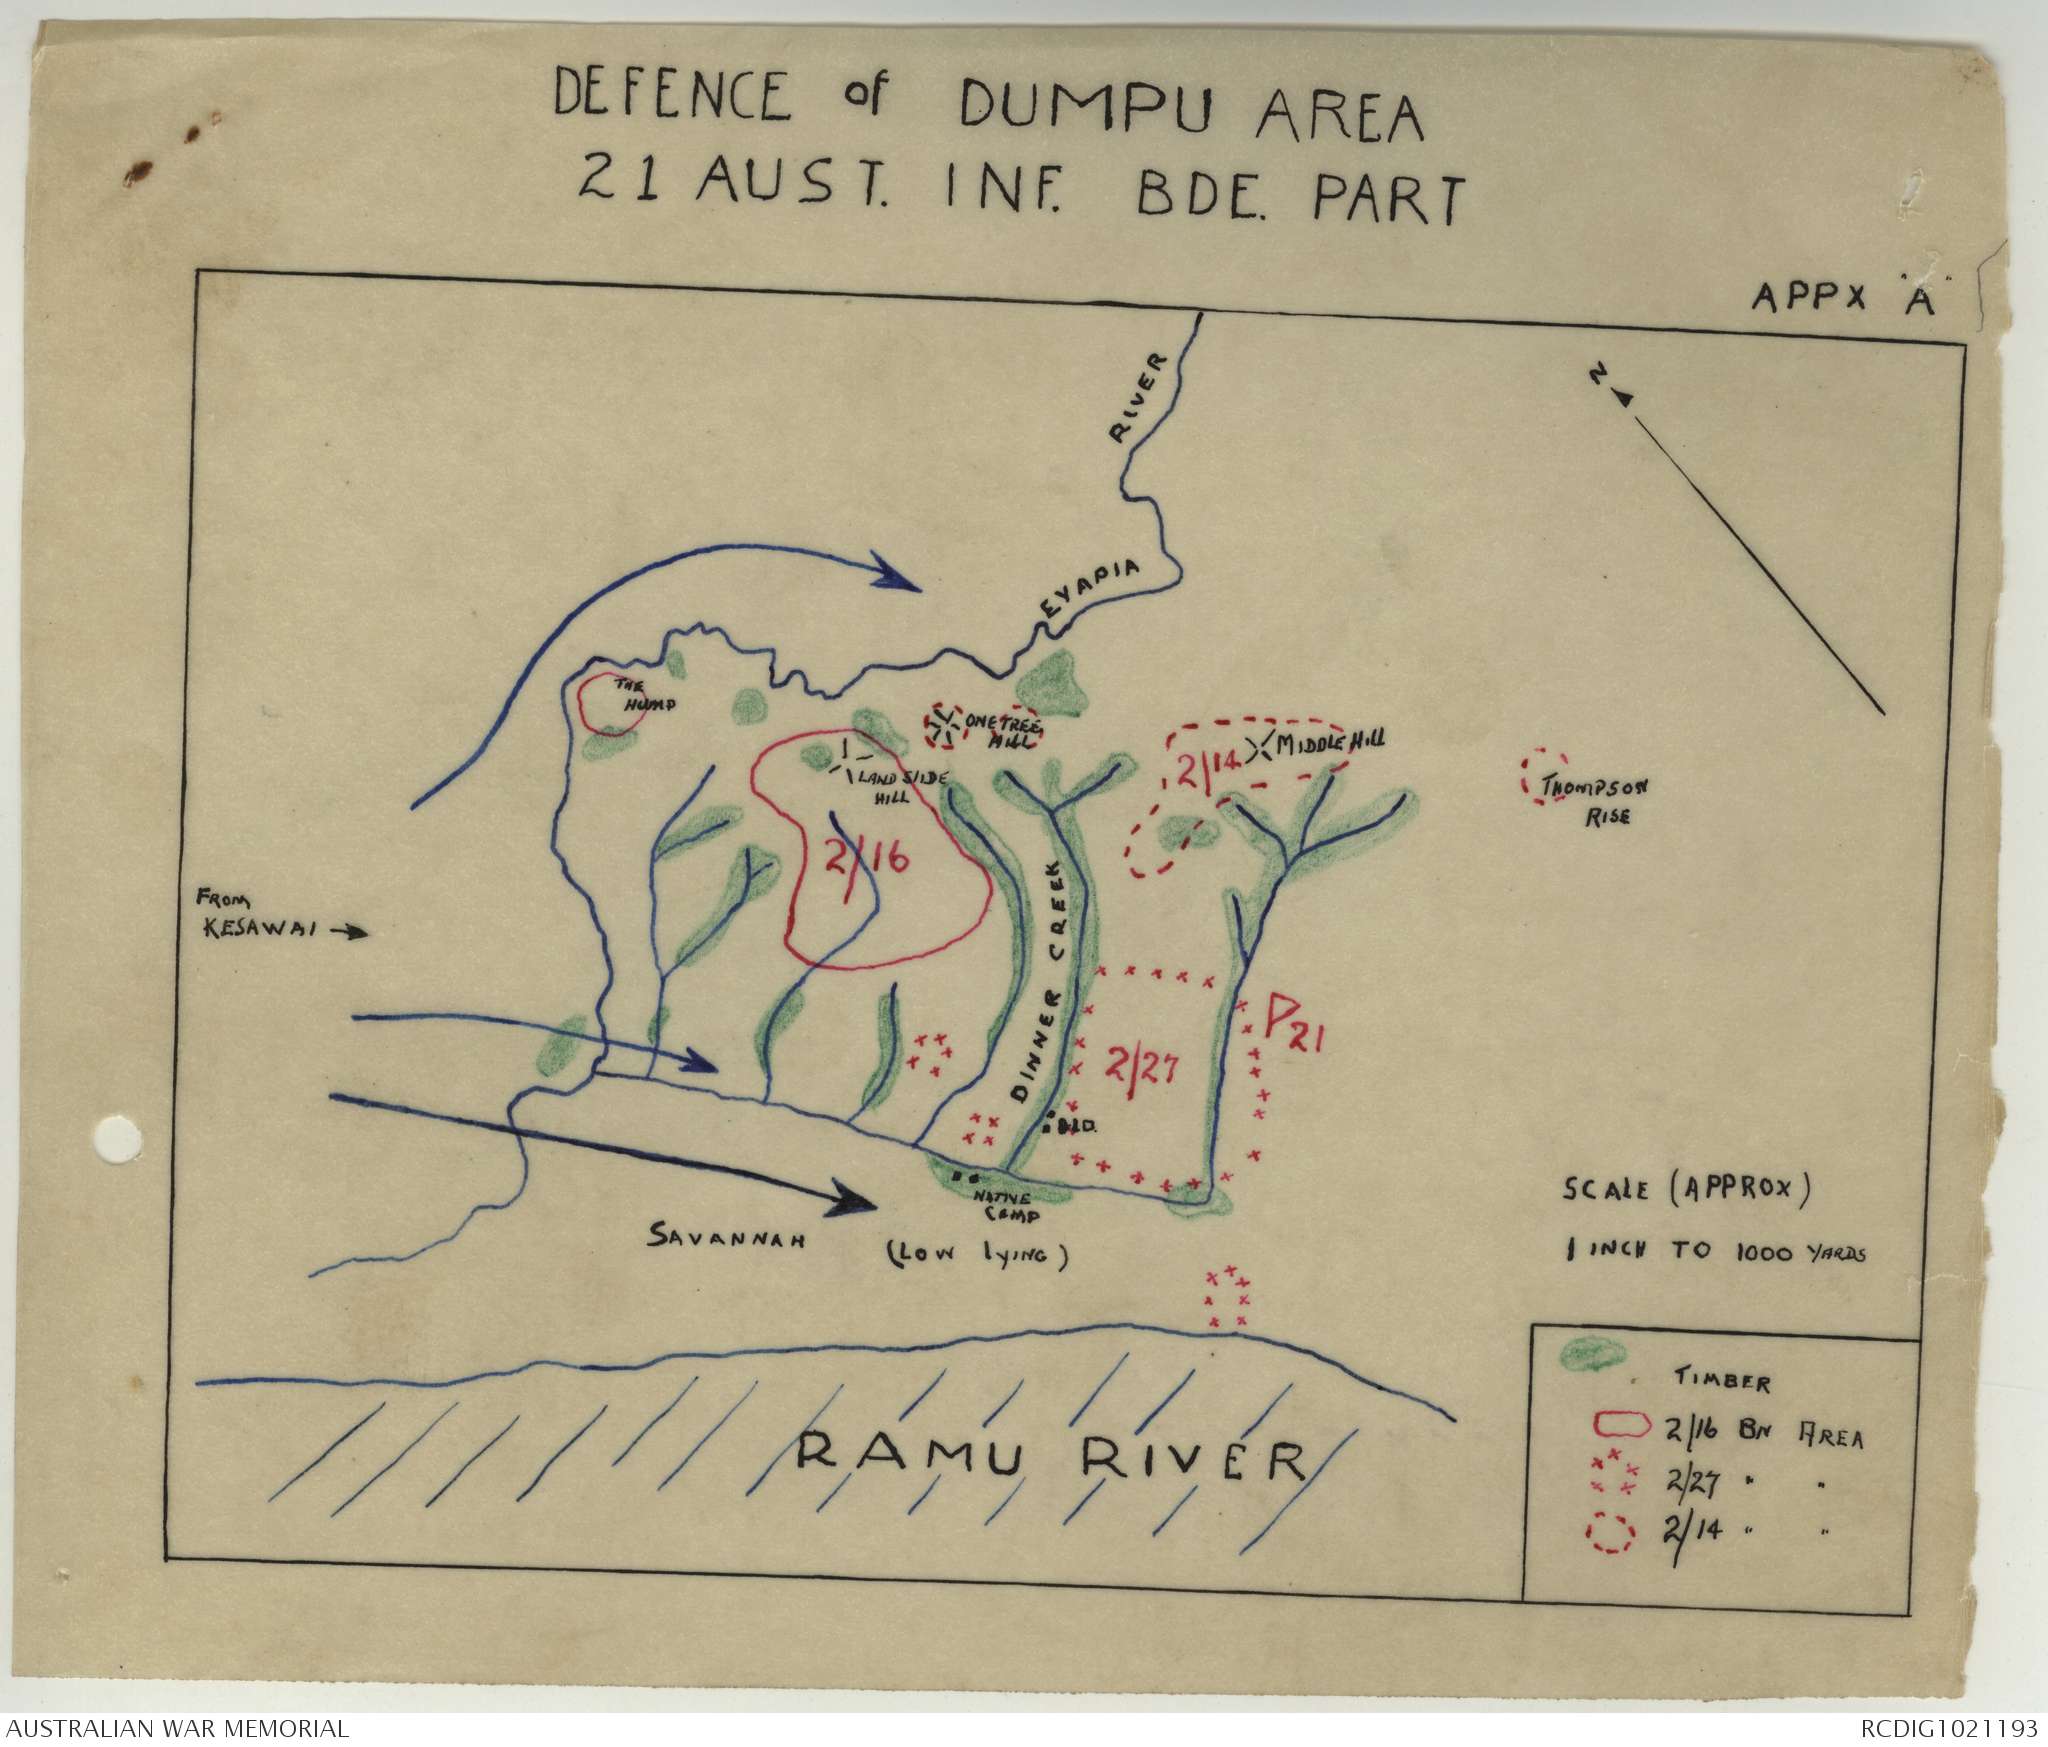 DEFENCE of DUMPU AREA
21 AUST. INF. BDE. PART
APPX "A"
N
RIVER
EYAPIA
THE
HUMP
ONETREE
HILL
MIDDLE HILL
2/14
LANDSLIDE
HILL
THOMPSON
RISE
2/16
FROM
KESAWAI
DINNER CREEK
P21
2/27
NATIVE
CAMP
SCALE (APPROX)
1 INCH TO 1000 YARDS
SAVANNAH (LOW lyING)
RAMU RIVER
TIMBER
2/16 BN AREA
2/27 " "
2/14 " "
AUSTRALIAN WAR MEMORIAL
RCDIG1021193